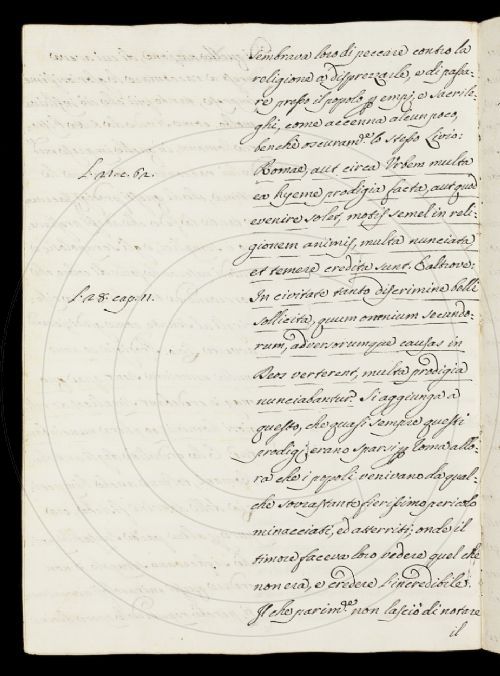 sembrava loro di peccare contro la
religione a disprezzarla, e di passa-
re presso il popolo p empj, e sacrile-
ghi, come accenna alcun poco,
benche oscuram.te lo stesso Livio:
L. 21. c. 62.
Romae, aut circa Urbem multa
ea hyeme prodigia facta, aut quod
evenire solet, motis semel in reli-
gionem animis, multa nunciata,
et temere credita sunt. E altrove:
L. 28. cap. 11.
In civitate tanto discrimine belli
sollicita, quum omnium secundo-
rum, adversorumque causas in
Deos verterent, multa prodigia
nunciabantur. Si aggiunga a
questo, che quasi sempre questi
prodigj erano sparsi p Roma allo-
ra che i popoli venivano da qual-
che sovrastante fierissimo pericolo
minacciati, ed atterriti; onde il
timore faceva loro vedere quel che
non era, e credere l'incredibile.
Il che parim.te non lasciò di notare
il